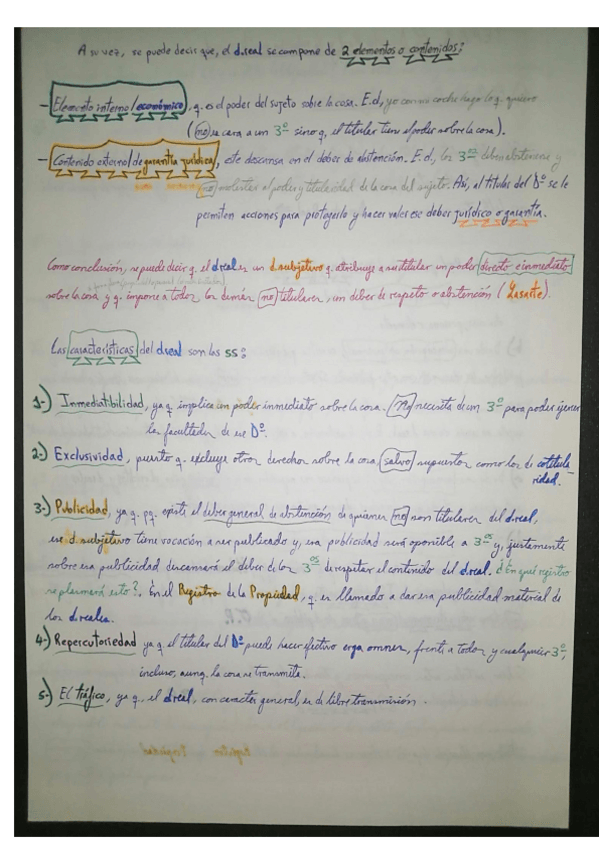 A su vez, se puede decir que, el d.real se compone de 2 elementos o contenidos:
- Elemento interno/económico, q. es el poder del sujeto sobre la cosa. E.d, yo con mi coche hago lo q. quiero
(no se cara a un 3º sino q, el titular tiene el poder sobre la cosa).
- Contenido externo/de garantía jurídica, este descansa en el deber de abstención. E.d, los 3ºs deben abstenerse y
no molestar al poder y titularidad de la cosa del sujeto. Así, al titular del Dº se le
permiten acciones para protegerlo y hacer valer ese deber jurídico o garantía.
Como conclusión, se puede decir q. el d.real es un d.subjetivo q. atribuye a su titular un poder directo e inmediato
sobre la cosa y q. impone a todos los demás no titulares, un deber de respeto o abstención (Lasarte).
Las características del d.real son las ss:
1-) Inmediatibilidad, ya q. implica un poder inmediato sobre la cosa. No necesita de un 3º para poder ejercer
las facultades de ese Dº.
2-) Exclusividad, puesto q. excluye otros derechos sobre la cosa, salvo supuestos como los de cotitula
ridad.
3-) Publicidad, ya q. pq. existe el deber general de abstención de quienes no son titulares del d.real,
ese d.subjetivo tiene vocación a ser publicado y, esa publicidad será oponible a 3ºs y, justamente
sobre esa publicidad descansará el deber de los 3ºs de respetar el contenido del d.real. ¿En qué registro
se plasmará esto?. En el Registro de la Propiedad, q. es llamado a dar esa publicidad material de
los d.reales.
4-) Repercutoriedad ya q. el titular del Dº puede hacer efectivo erga omnes, frente a todos y cualquier 3º,
incluso, aunq. la cosa se transmita.
5-) El tráfico, ya q, el d.real, con caracter general, es de libre transmisión.